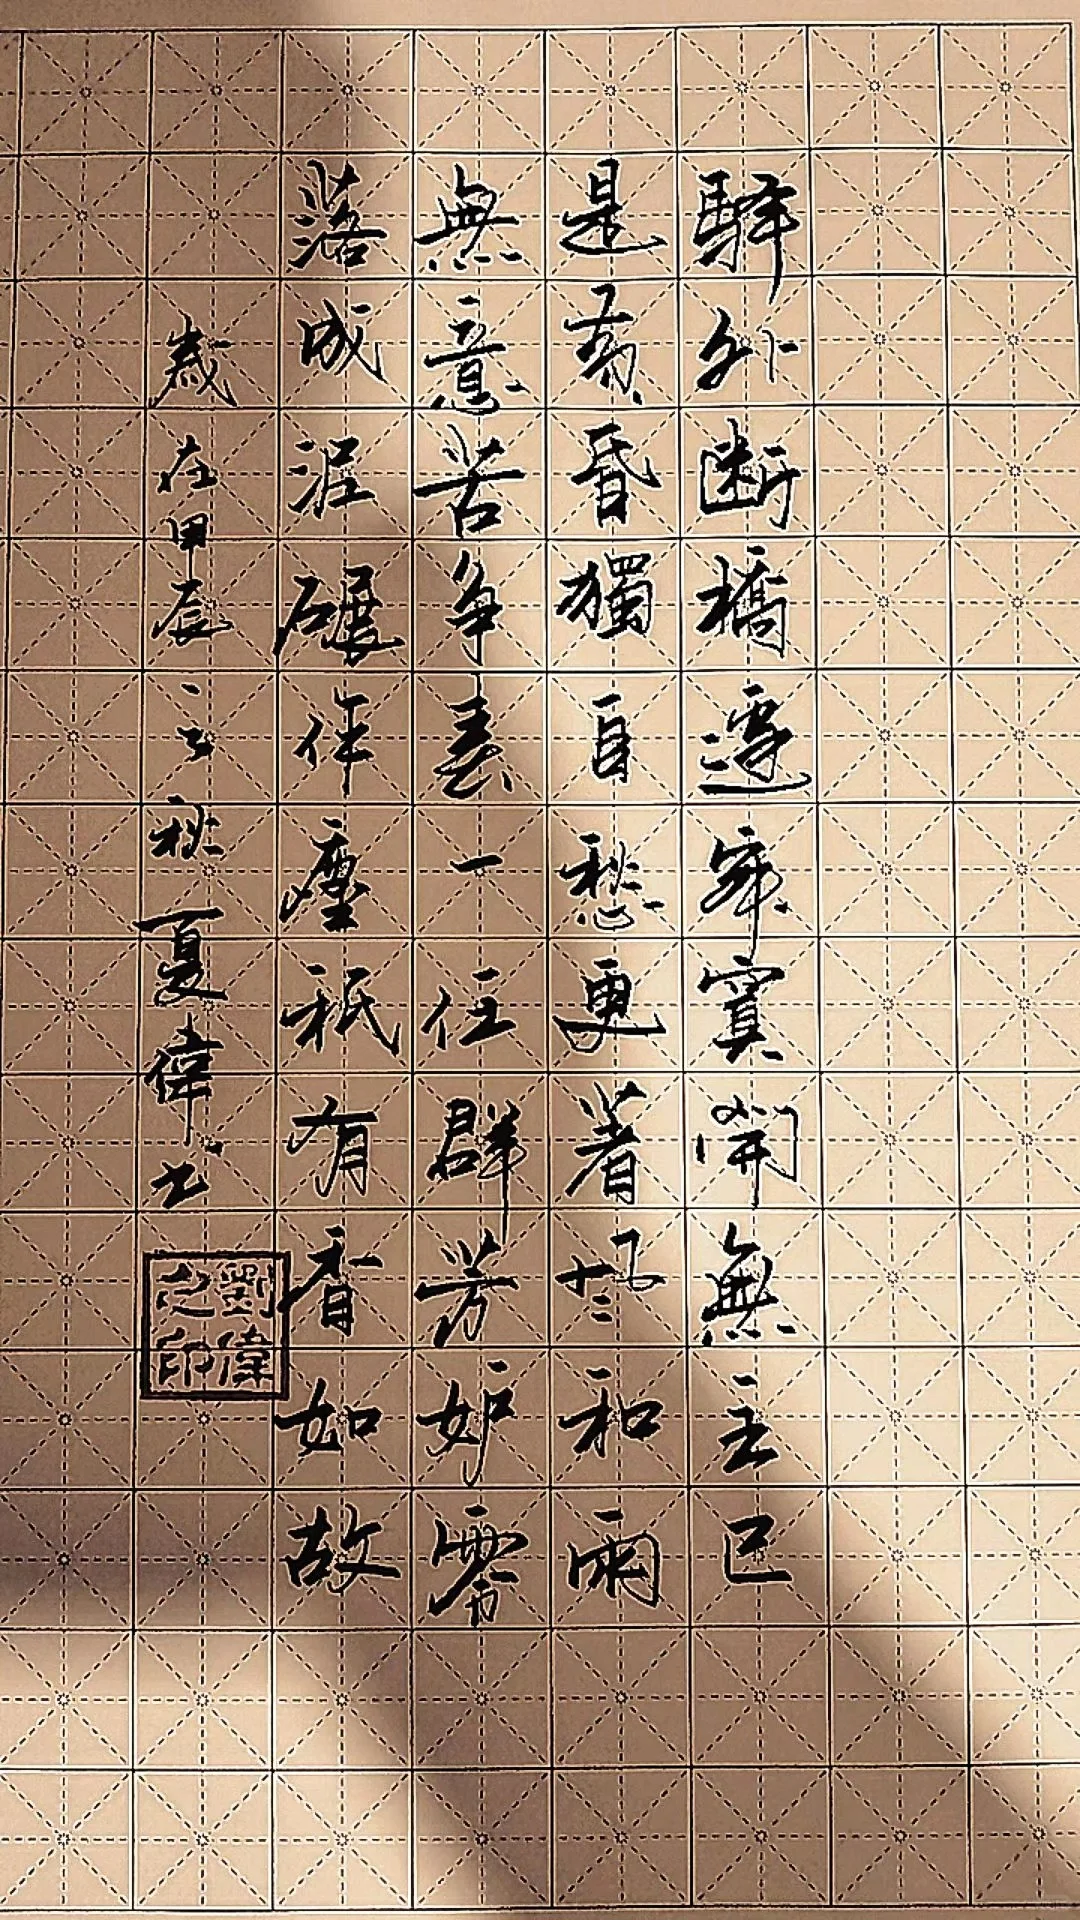 驛外断橋邊寂寞開無主已
是黄昏獨自愁更著風和雨
無意苦争春一任群芳妒零
落成泥碾作塵祇有香如故
歲在甲辰之秋夏偉书
劉偉之印